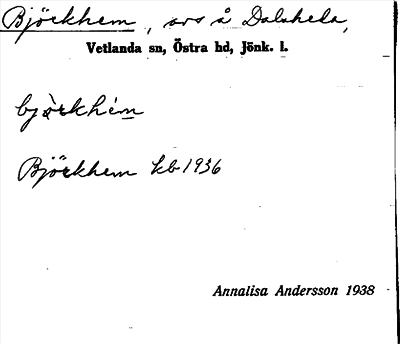 Björkhem, avs å Dalaheda,
Vetlanda sn, Östra hd, Jönk. l.
bjò̱rkhém
Björkhem kb 1936
Annalisa Andersson 1938